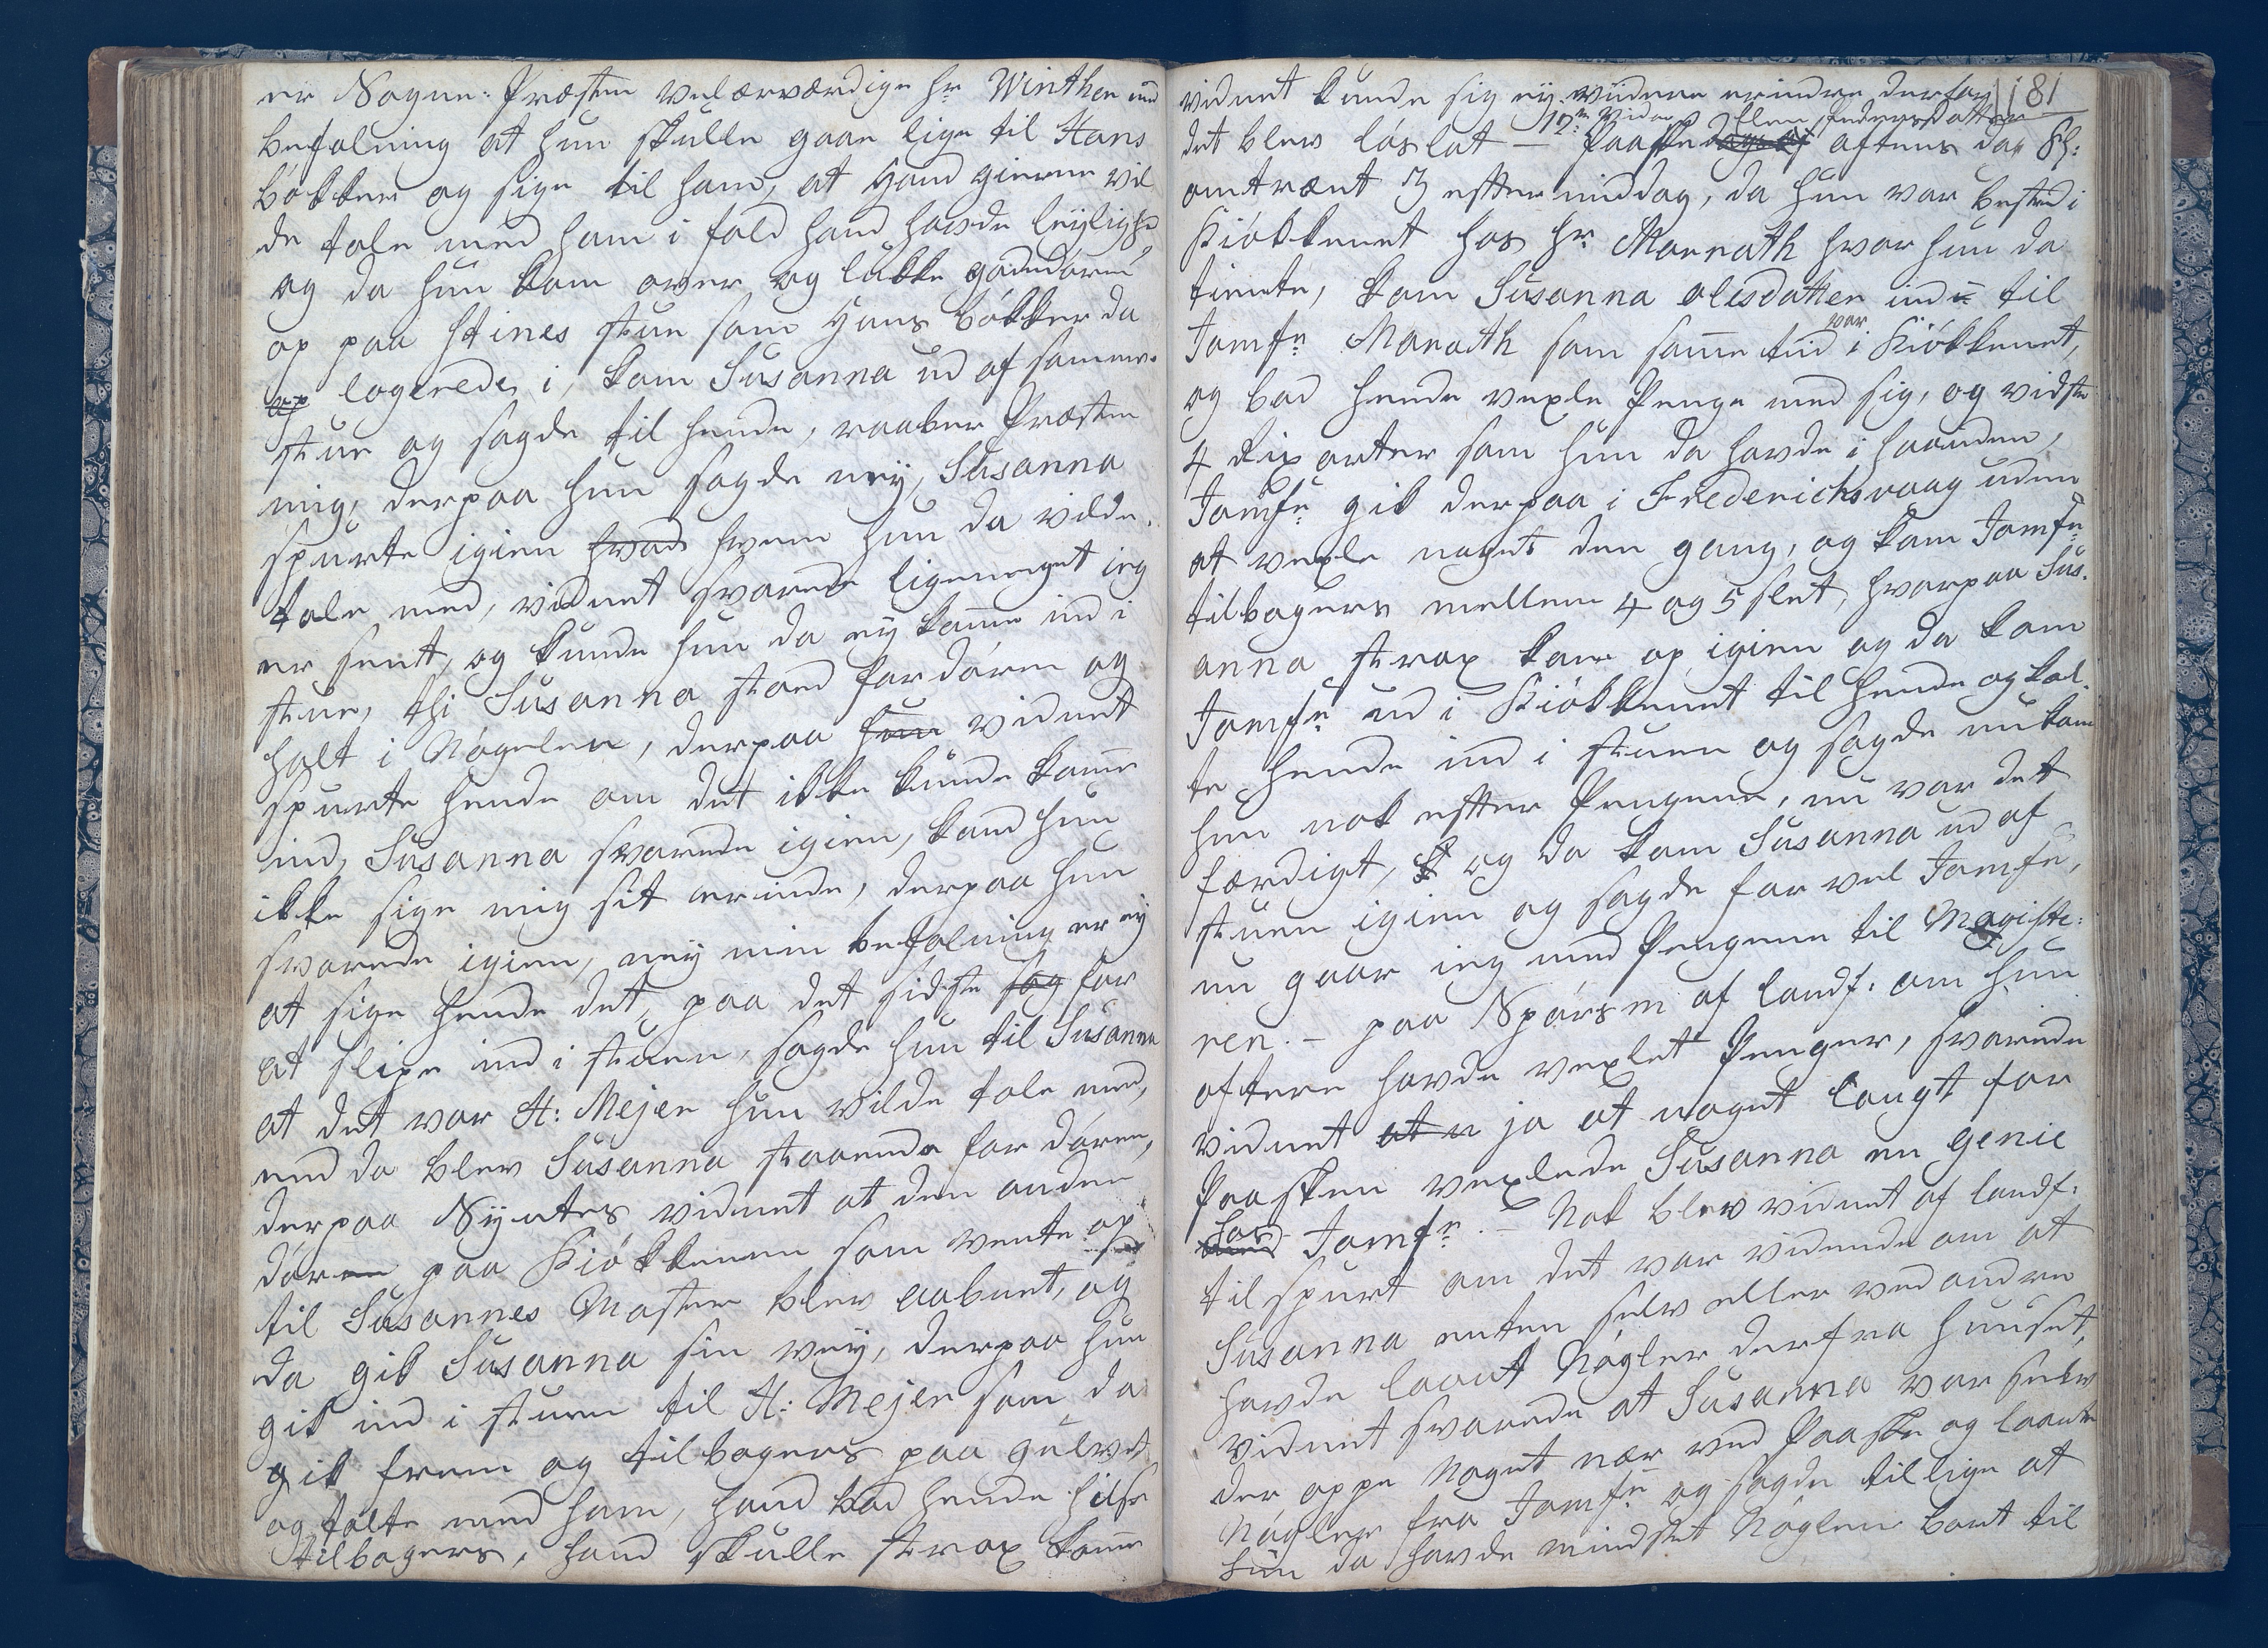 er Sogne-Præsten velærværdige hr Winther med
befalning at hun skulle gaae lige til Hans
bökker og sige til ham, at hand gierne vil
de tale med ham i fald hand havde leyligh:
og da hun kom over og lukke gadedören
op paa Stines stue som Hans bökker da
logerede i, kom Susanna ud af samme
stue og sagde til hende, raaber Præsten
mig, derpaa hun sagde neÿ, Susanna
spurte igien hvad hvem hun da vilde
tale med, vidnet svarede ligemeget ieg
er sent, og kunde hun da eÿ komme ind i
stue, thi Susanna stoed for dören og
holt i Nögelen, derpaa hun vidnet
spurte hende om det ikke kunde komme
ind, Susanna svarede igien, kand hun
ikke sige mig sit ærinde, derpaa hun
svarede igien, neÿ min befalning er eÿ
at sige hende det, paa det sidste sag for
at slipe ind i stuen, sagde hun til Susanna
at det var H: Mejer hun vilde tale med,
end da blev Susanna staaende for dören,
derpaa Syntes vidnet at den anden
dören paa Kiökkenen som vente op
til Susannes Moster blev aabnet, og
da gik Susanna sin veÿ, derpaa hun
gik ind i stuen til H: Mejer som da
gik frem og tilbagers paa gulvet
og talte med ham, hand bad hende hilse
tilbagers, hand skulle strax komme
vidnet kunde sig eÿ viidere erindre derfor
181
det blev löslat — 12te Vidne Elen Pedersdatter
Paaske aftens dag Kl:
omtrænt 3 efftermiddag, da hun var bested i
Kiökkenet hos hr Monrath hvor hun da
tiente, kom Susanna olisdatter ind til
Jomfr Monrath som samme tiid var i Kiökkenet,
og bad hende vexle Penge med sig, og vidste
4 Rix orter som hun da havde i haanden,
Jomfr gik derpaa i Frederichsvaag uden
at vexle noget den gang, og kom Jomfr
tilbagers mellem 4 og 5 slet, hvorpaa Sus-
anna strax kom op igien og da kom
Jomfr ud i Kiökkenet til hende og kal-
te hende ind i stuen og sagde nu kom
hun nok effter Pengene, nu var det
færdigt, og da kom Susanna ud af
stuen igien og sagde far vel Jomfr,
nu gaar ieg med Pengene til Magiste:
ren. — paa Spörsm af landf: om hun
oftere havde vexlet Penger, svarede
vidnet at n ja at noget langt for
Paasken vexlede Susanna en genie
hos Jomfr. — Nok blev vidnet af landf:
tilspurt om det var vidende om at
Susanna enten selv eller ved andre
havde laant Nögler derfra huuset,
vidnet svarede at Susanna var selv
der oppe noget nær ved Paaske og laante
Nögler fra Jomfr og sagde tillige at
hun da havde mindstet Nöglen bort til